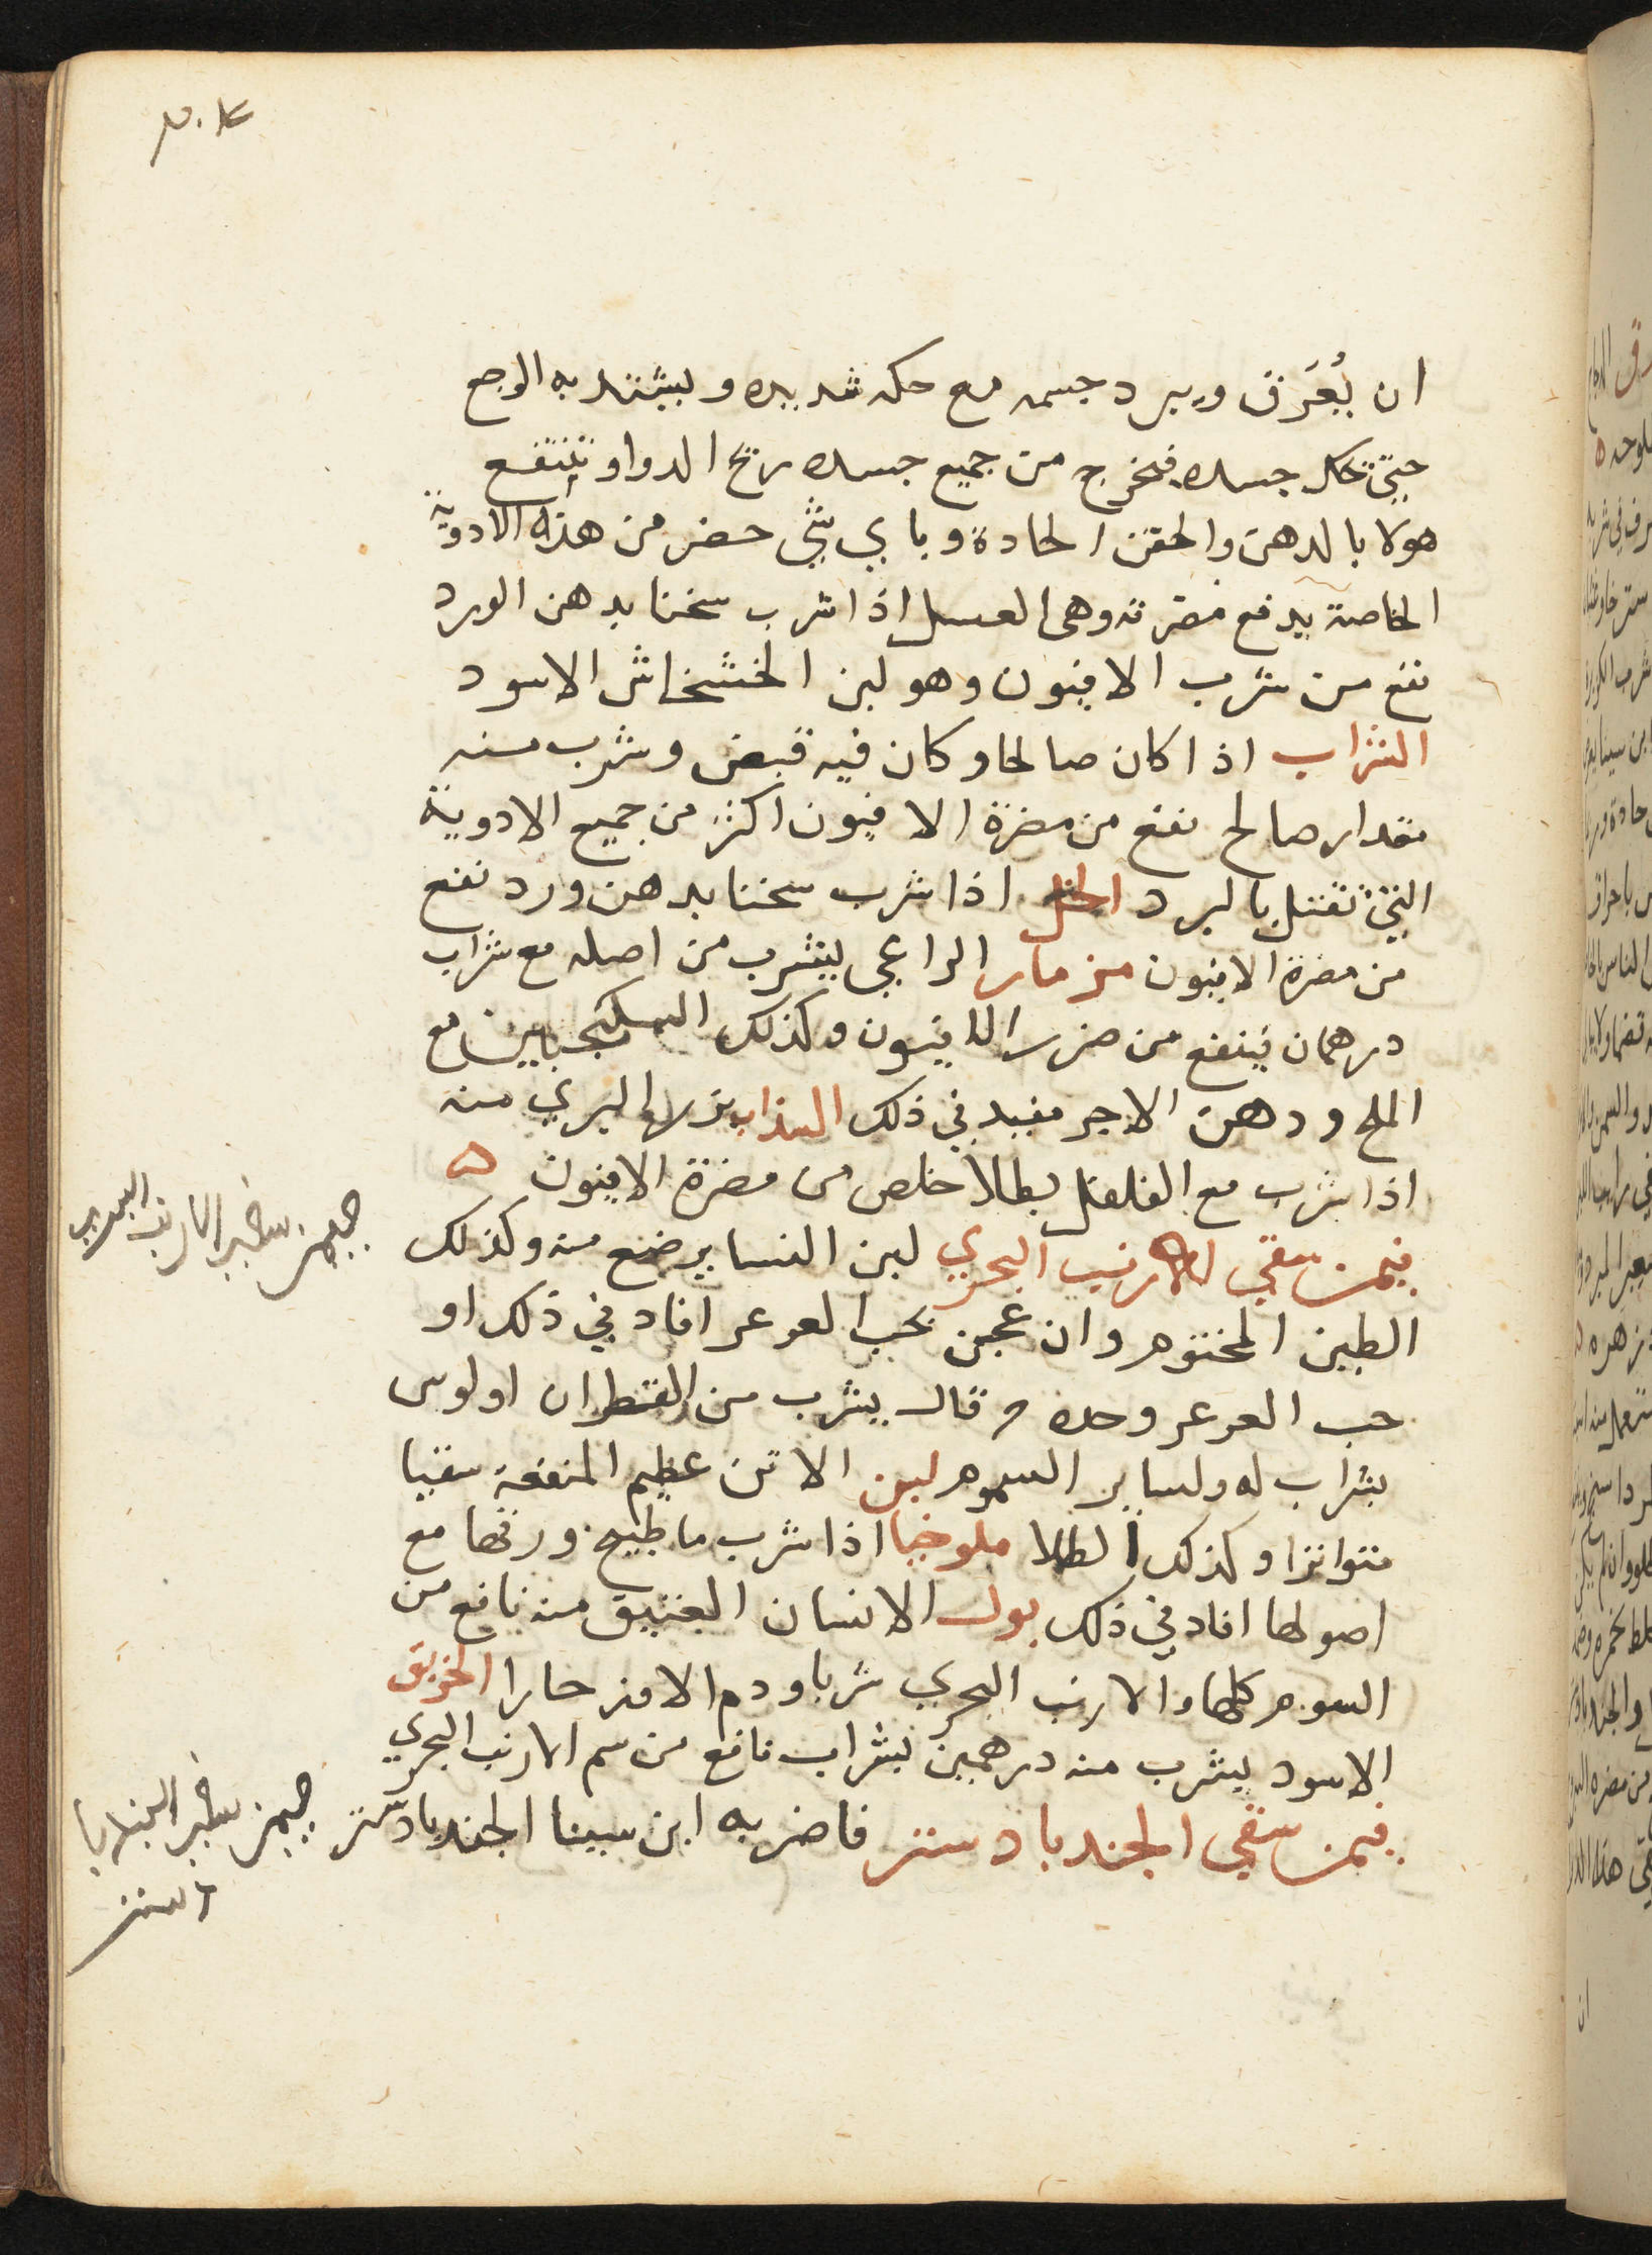 ان يُعَرق ويبرد جسمه مع حكه شديده ويشتد به الوجع
حتى تحكر جسده فيخرج من جميع جسده ريح الدوا وينتفع
هولا بالدهن والحقن الحادة وباي شي حضر من هذه الادوية
الخاصة يدفع مضرته وهى العسل اذا شرب سخنا بدهن الورد
نفع من شرب الافيون وهو لبن الخشخاش الاسود
الشراب اذا كان صالحا وكان فيه قبض وشرب منه
مقدار صالح نفع من مضرة الافيون اكثر من جميع الادوية
التي تقتل بالبرد الخل اذا شرب سخنا بدهن ورد نفع
من مضرة الافيون مزمار الراعي يشرب من اصله مع شراب
درهمان ينفع من ضرر الافيون وكذلك السكنجبين مع
الملح ودهن الاجر مفيد في ذلك السذاب البري منه
اذا شرب مع الفلفل بطلا خلص من مضرة الافيون ه
فيمن سقي الارنب البحري لبن النسا يرضع منه وكذلك
الطين المختوم وان عجن بحب العرعر افاد في ذلك او
حب العرعر وحده وقال يشرب من القطران اولوس
بشراب له ولساير السموم لبن الاتن عظيم المنفعة سقيا
متواترا وكذلك الطلا ملوخيا اذا شرب ما طبيخ ورقها مع
اصولها افاد في ذلك بول الانسان العتيق منه نافع من
السوم كلها والارنب البحري شربا ودم الاوز حارا الخربق
الاسود يشرب منه درهمين بشراب نافع من سم الارنب البحري
فيمن سقي الجندبادستر فاضر به ابن سينا الجندبادستر